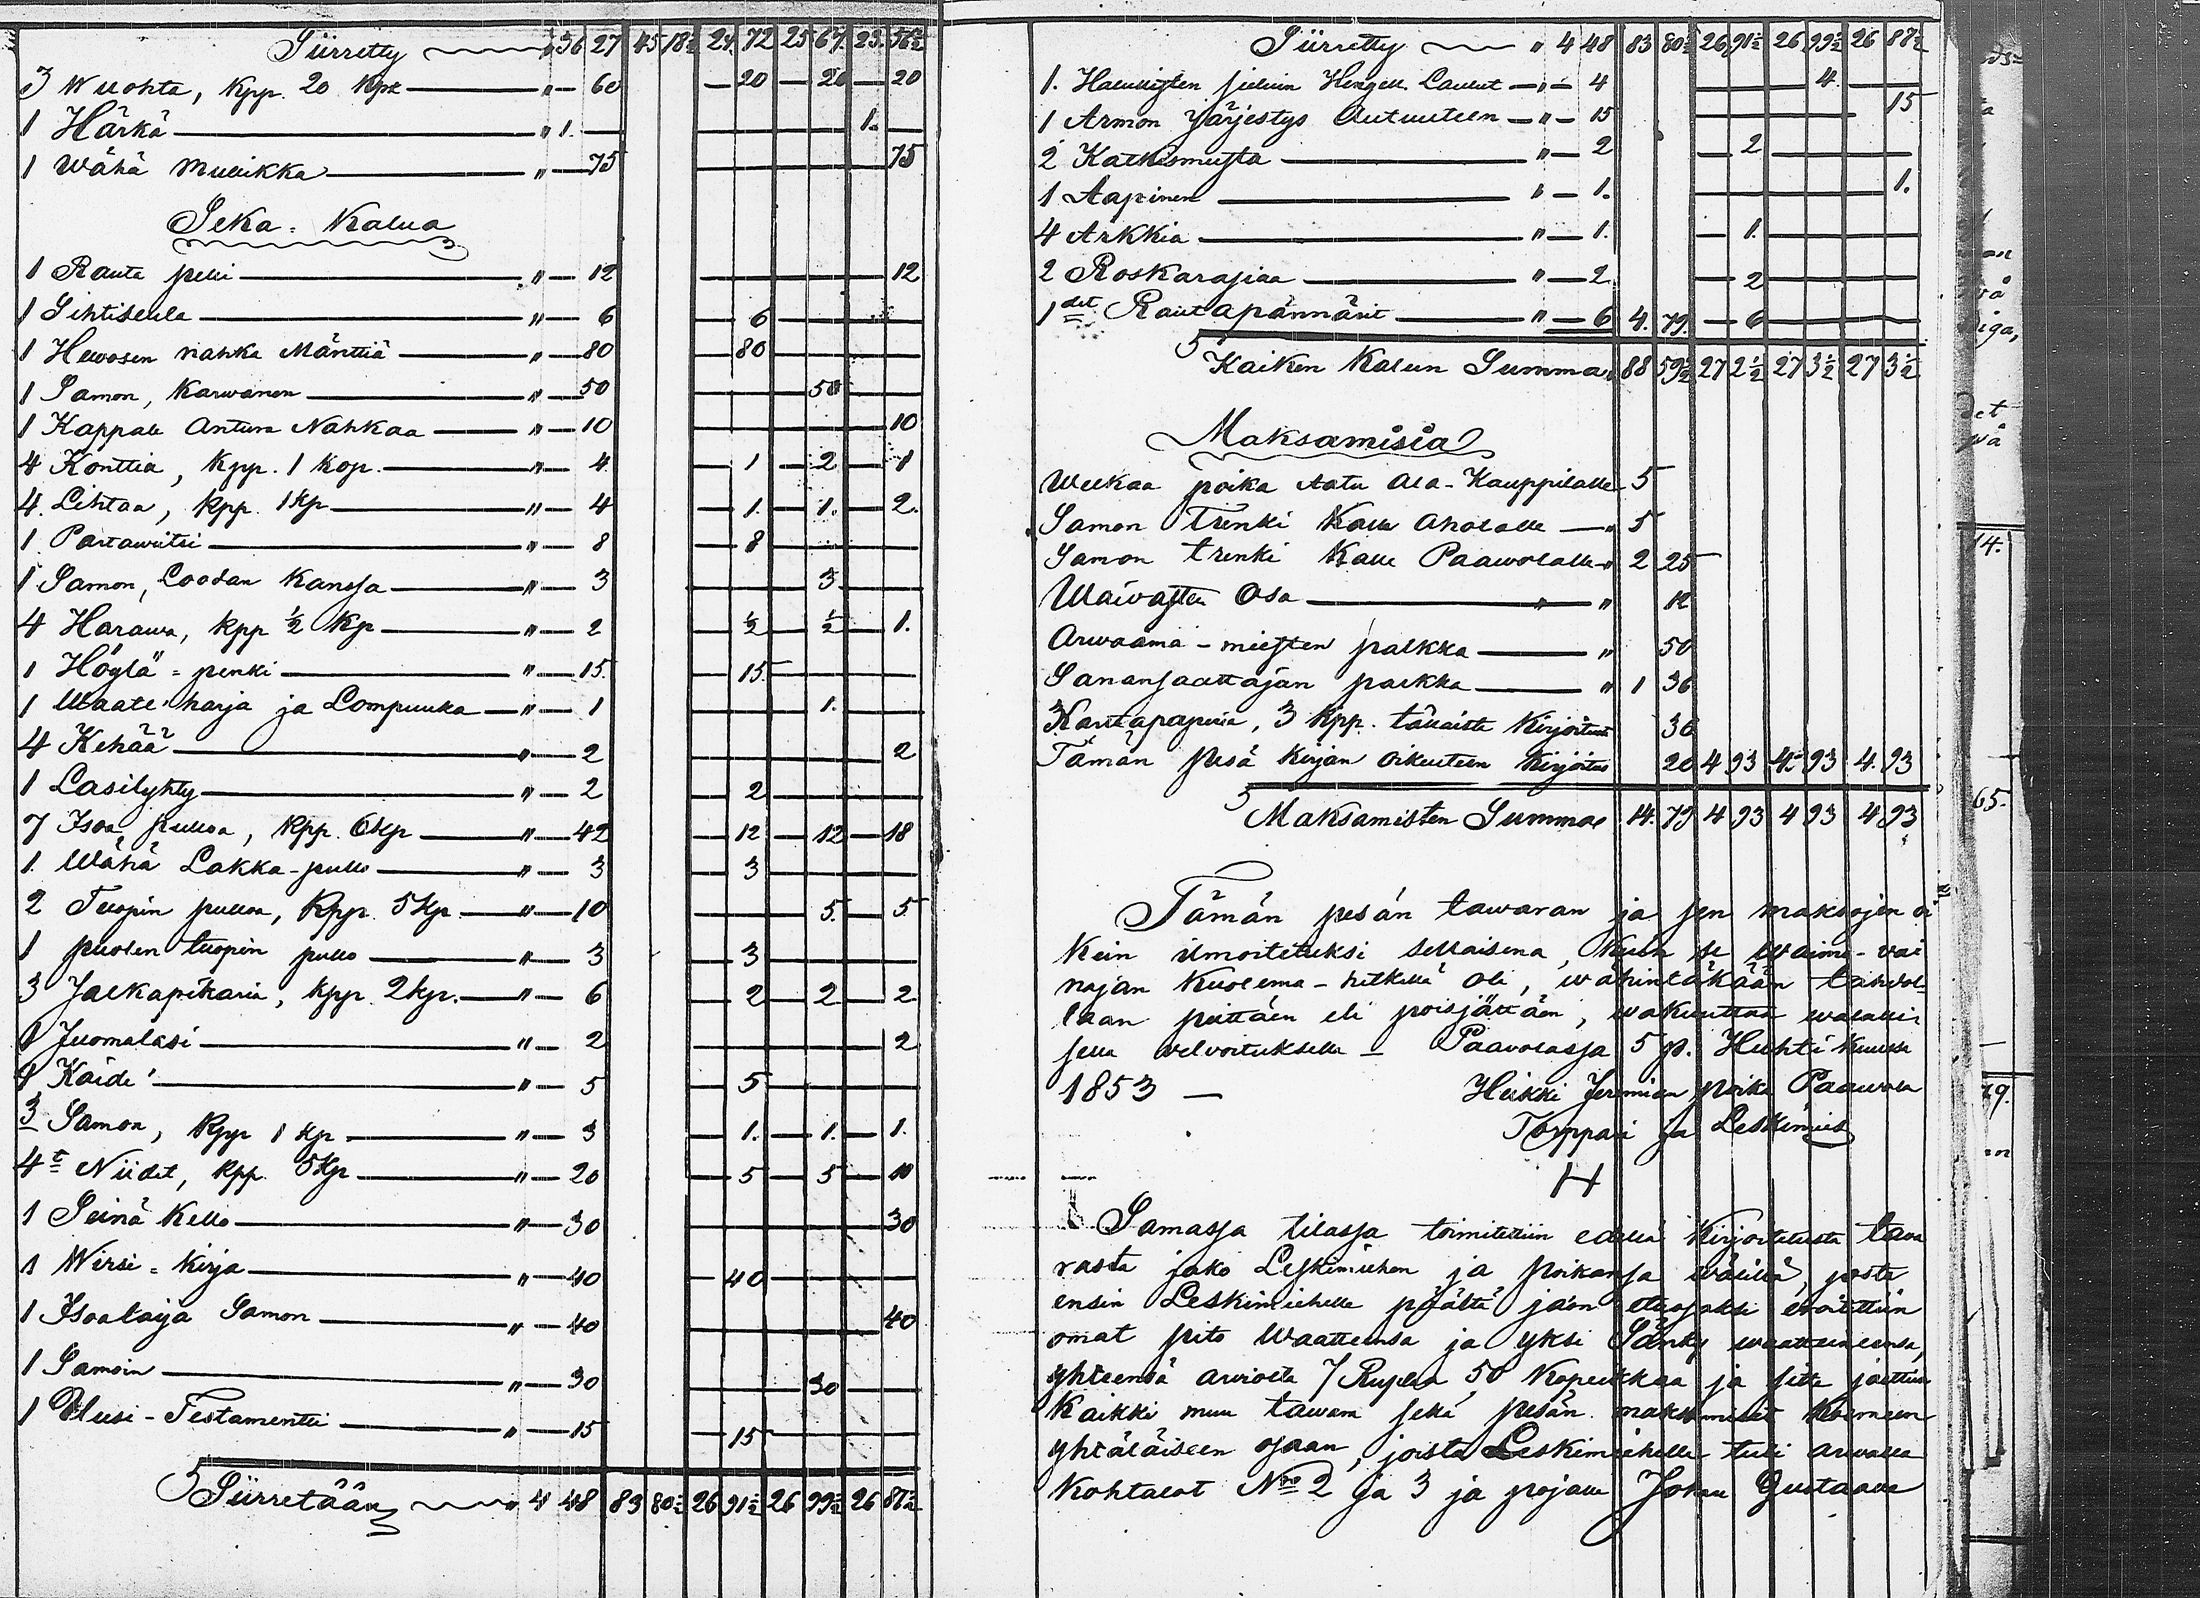 Siirretty " 36 27 45 18½ 24 72 25 67 23 56½
3 Wuohta, Kpp. 20 Kpk " 60 20 20 20
1 Härkä " 1. 1.
1 Wähä Mullikka " 75 75
Seka-Kalua
1 Rauta pelli " 12 12
1 Sihtiseula " 6 6
1 Hewosen nahka Mänttiä " 80 80
1 Samon, Karwanen " 50 50
1 Kappale Antura Nahkaa " 10 10
4 Konttia, Kpp. 1 Kop. " 4 1 2 1
4 Lihtaa, Kpp. 1 Kp " 4 1. 1. 2.
1. Partaweitsi " 8 8
1 Samon, Loodan Kanssa " 3 3
4 Harawa, Kpp ½ Kp " 2 ½ ½ 1.
1 Höylä=penki " 15. 15
1 Waate harja ja Lompuuka " 1 1.
4 Kehää " 2 2
1 Lasilyhty " 2 2
7 Isoa pulloa, Kpp. 6 Kp " 42 12 12 18
1. Wähä Lakka-pullo " 3 3
2 Tuopin pulloa, Kpp. 5 Kp. " 10 5. 5
1 puolen tuopin pullo " 3 3
3 Jalkapikaria, Kpp. 2 Kp. " 6 2 2 2
1 Juomalasi " 2 2
1 Kaide " 5 5
3 Samon, Kpp 1 Kp " 3 1. 1. 1.
4t Niidet, Kpp. 5 Kp " 20 5 5 10
1 Seinä Kello " 30 30
1 Wirsi=Kirja " 40 40
1 Isoalaija Samon " 40 40
1 Samoin " 30 30
1 Uusi-Testamentti " 15 15
Siirretään " 4 48 83 80½ 26 91½ 26 99½ 26 87½
Siirretty " 4 48 83 80½ 26 91½ 26 99½ 26 87½
1. Hengell. Laulut " 4 4
1 Armon Järjestys Autuuteen " 15 15
2 Katkismusta " 2 2
1 Aapinen " 1. 1.
4 Arkkia " 1. 1.
2 Roskarasiaa " 2 2
1 det Rautapännärit " 6 4. 79. 6
Kaiken Kalun Summa 88 59½ 27 2½ 27 3½ 27 3½
Maksamisia
Welkaa poika Aatu Ala-Kauppilalle 5
Samon Trenki Kalle Aholalle " 5
Samon trenki Kalle Paawolalle " 2 25
Waiwasten Osa " " 12
Arwaama-miesten palkka " 50
Sanansaattajan palkka " 1 36
Kartapaperia, 3 Kpp. tällaista Kirjoitusta 36
Tämän pesä Kirjan oikeuteen Kirjoitus 20 4 93 4 93 4. 93
Maksamisten Summa 14. 79 4 93 4 93 4 93
Tämän pesän tawaran ja sen maksojen oi
kein ilmoitetuksi sellaisena, Kuin se waimo-vai
najan Kuolema-hetkellä oli, wähintäkään tahdol-
laan peittäen eli poisjättäen, wakuuttaa walalli
sella velvoituksella – Paavolassa 5 p. Huhti Kuussa
1853 – Heikki Jeremian poika Paawola
Torppari ja Leskimies
H
Samassa tilassa toimitettiin edellä Kirjoitetusta tava
rasta jako Leskimiehen ja poikansa välillä, josta
ensin Leskimiehelle päältä jaon etuosaksi eroitettiin
omat pito Waatteensa ja yksi Sänky waatteineensa,
yhteensä arwiolta 7 Ruplaa 50 Kopeekkaa ja sitte jaettiin
Kaikki muu tawara sekä pesän maksamiset Kolmeen
yhtäläiseen osaan, joista Leskimiehelle tuli arwalla
Kohtalot No 2 ja 3 ja pojalle Johan Gustaawa
det
14.
65.